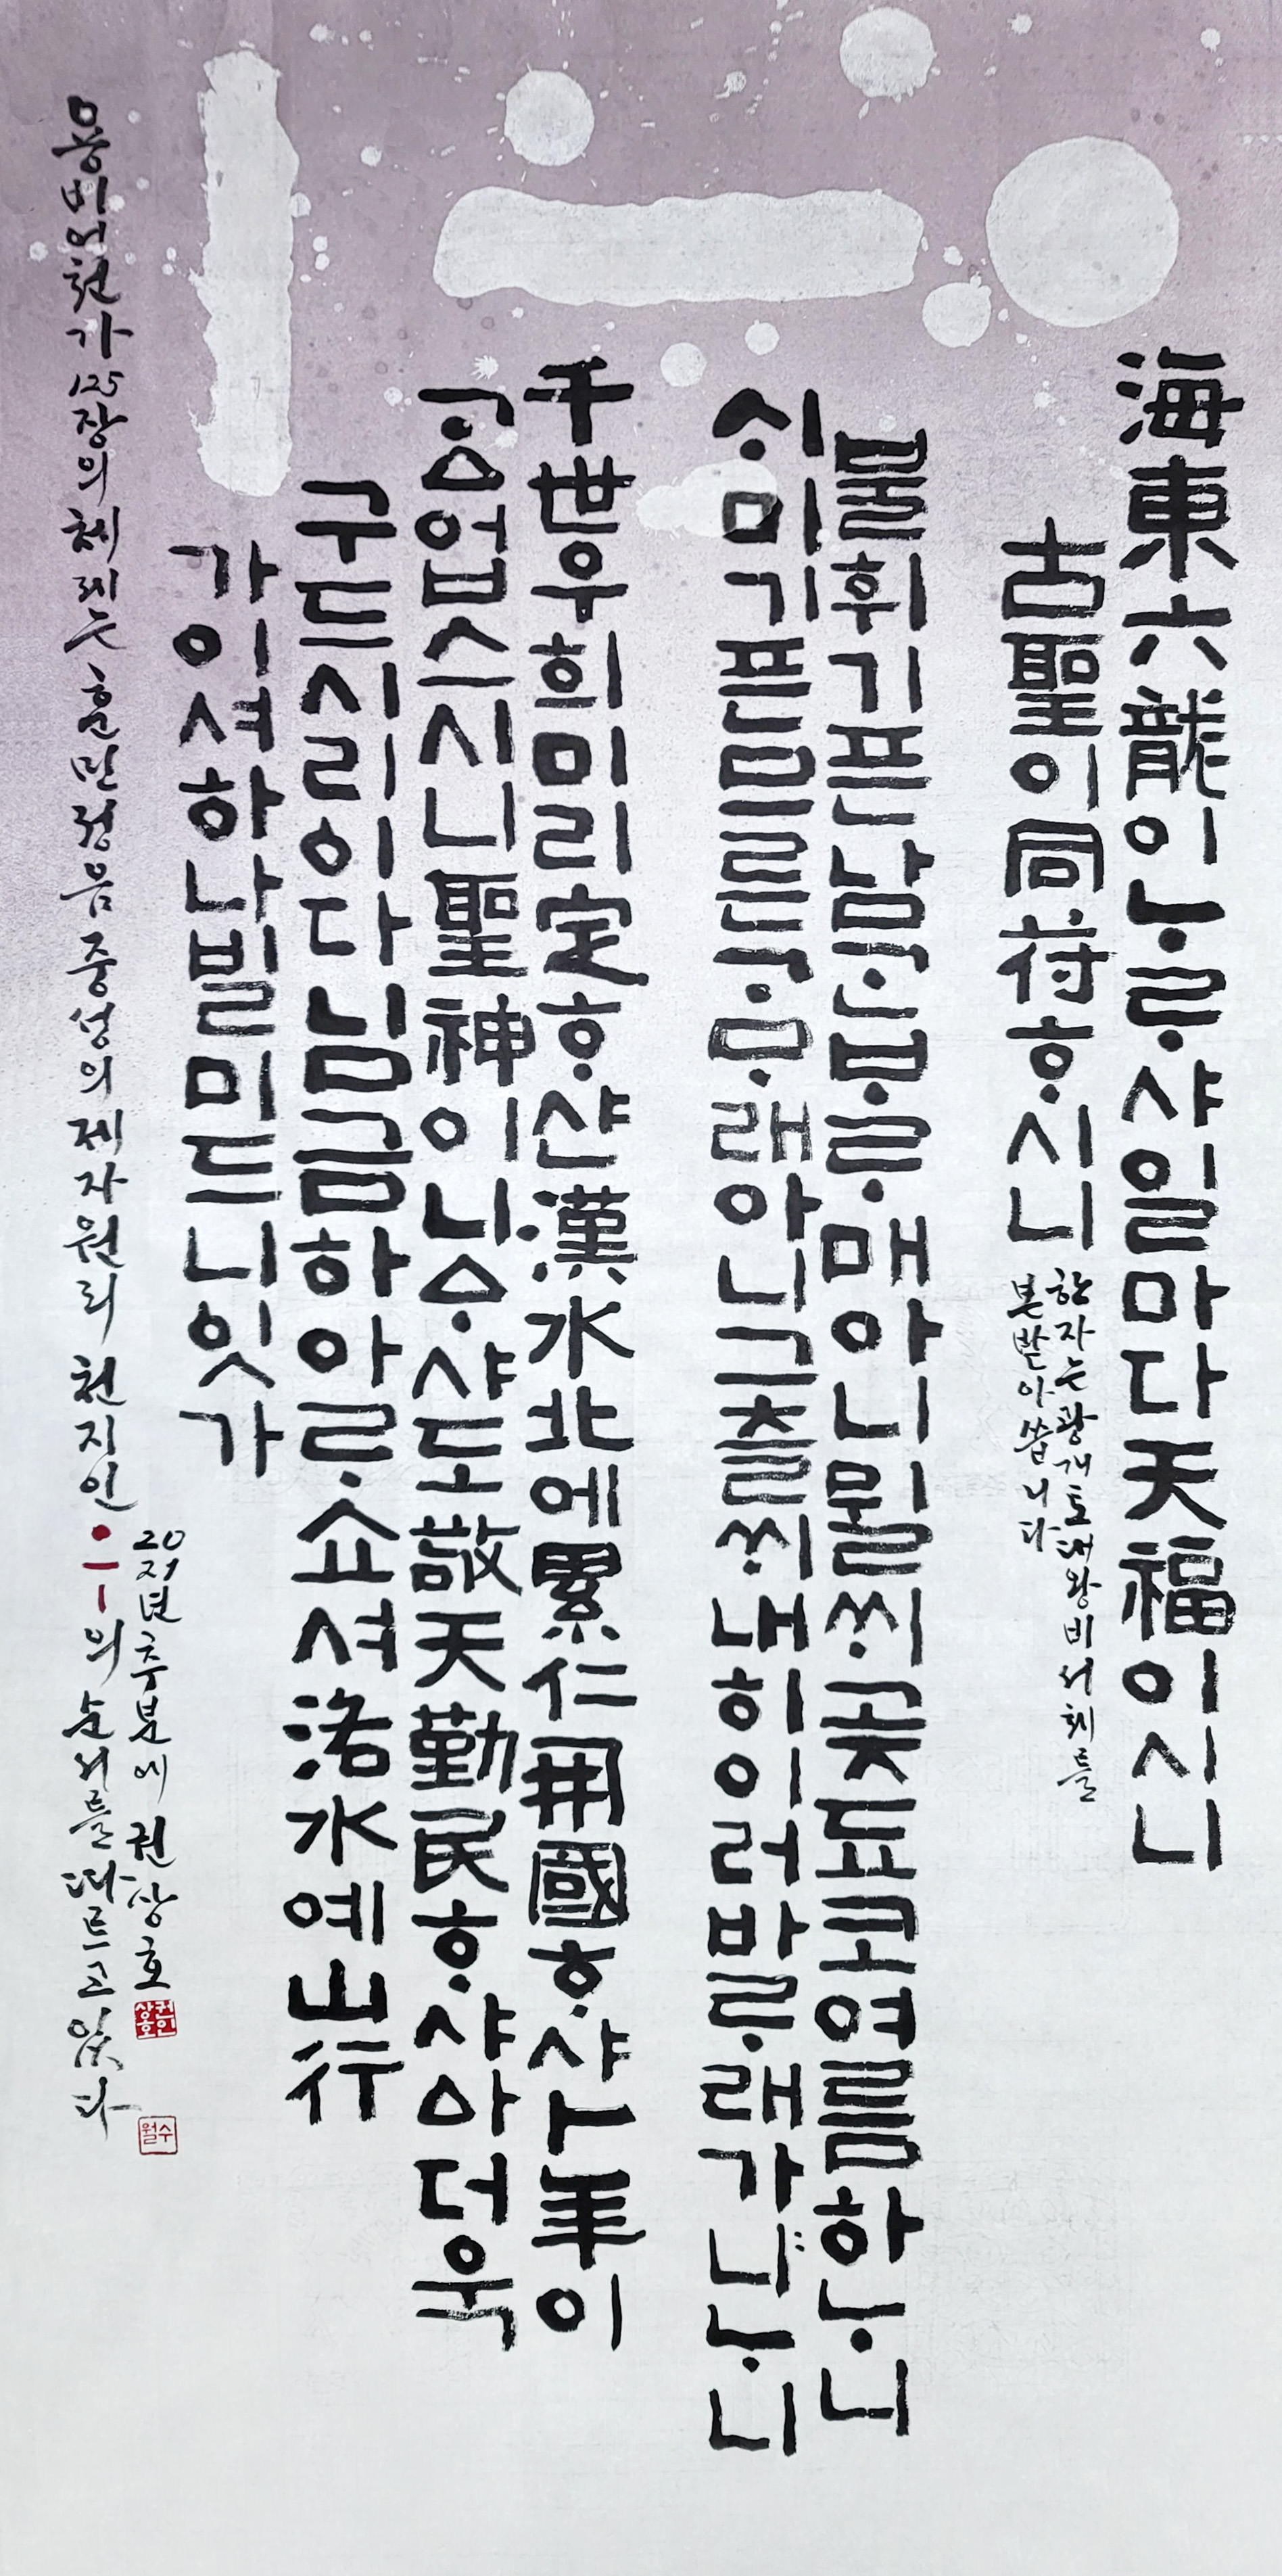 海東六龍이ᄂᆞᄅᆞ샤일마다天福이시니
古聖이同符ᄒᆞ시니
한자는광개토대왕비서체를
본받아씁니다
불휘기픈남ᄀᆞᆫᄇᆞᄅᆞ매아니뮐ᄊᆡ곶됴코여름하ᄂᆞ니
ᄉᆡ미기픈므른ᄀᆞᄆᆞ래아니그츨ᄊᆡ내히이러바ᄅᆞ래가니ᄂᆞ니
千世우희미리定ᄒᆞ샨漢水北에累仁開國ᄒᆞ샤卜年이
ᄀᆞᇫ업스시니聖神이니ᅀᆞ샤도敬天勤民ᄒᆞ샤아더욱
구드시리이다님금하아ᄅᆞ쇼셔洛水예山行
가이셔하나빌미드니잇가
용비어천가 125장의 체제는 훈민정음 중성의 제자원리 천지인 ㆍㅡㅣ의 순서를 따르고 있다
2021년 추분에 권상호
권인상호
수월